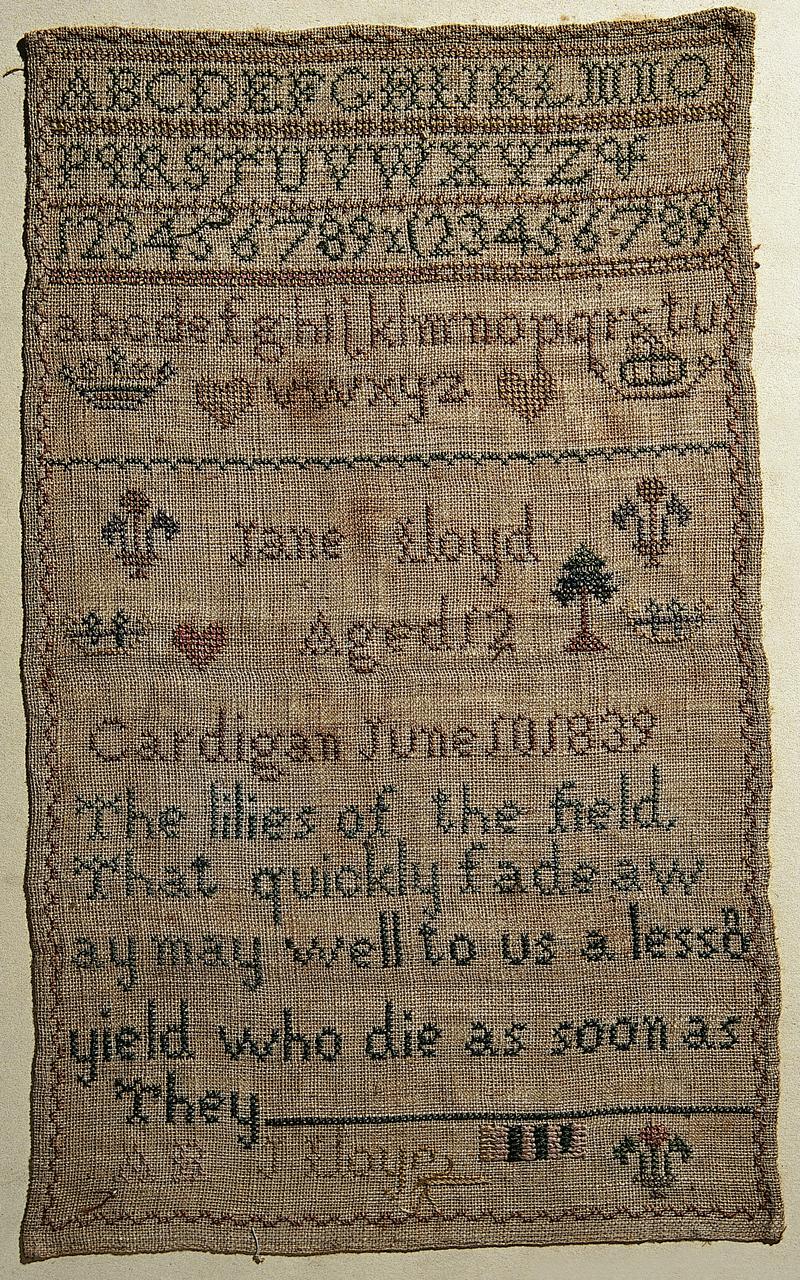 ABCDEFGHIJKLMNO
PQRSTUVWXYZ&
123456789x(23456789
abcdefghijklmnopqrstu
vwxyz
Jane Lloyd
Aged 12
Cardigan June 101839
The lilies of the field.
That quickly fade aw
ay may well to us a lesson
yield who die as soon as
They
J Lloyd